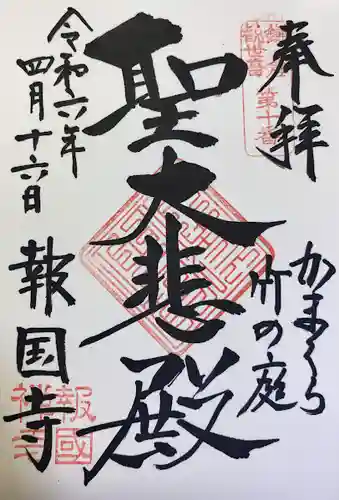 奉拝
鎌倉
観世音
第十番
かまくら
竹の庭
聖大悲殿
令和六年
四月十六日
報国寺
報國
禅寺